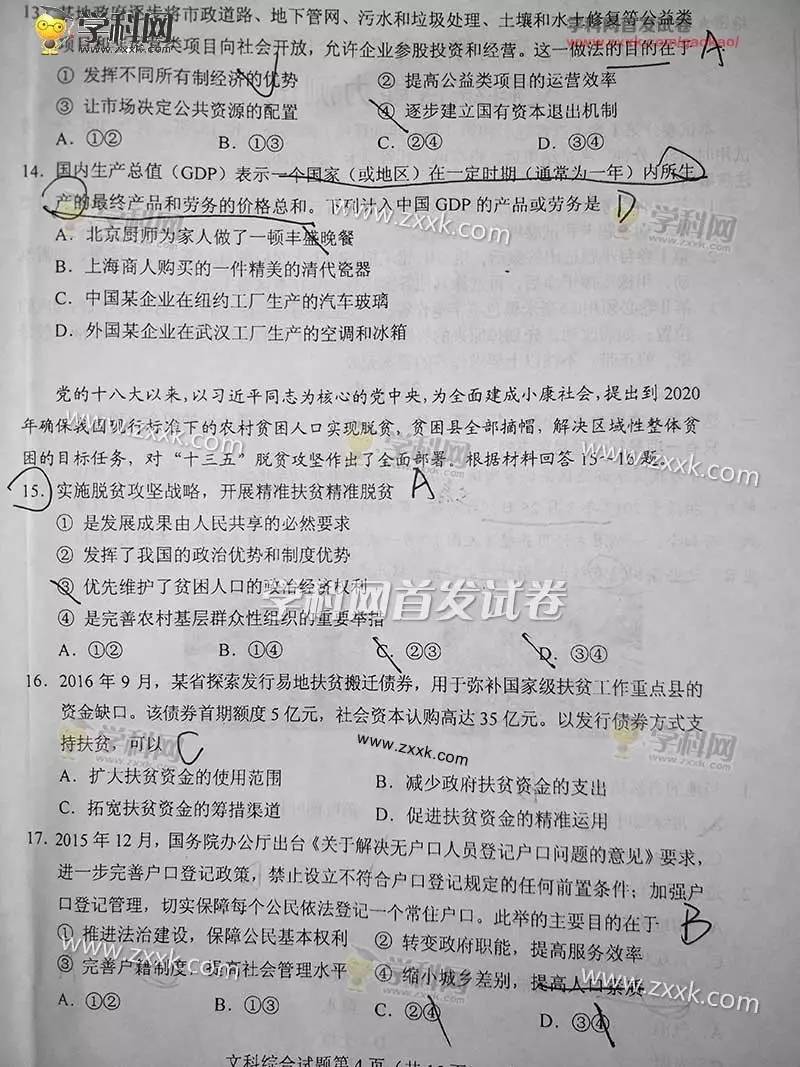 13. 某地政府逐步将市政道路、地下管网、污水和垃圾处理、土壤和水土修复等公益类
项目向社会开放，允许企业参股投资和经营。这一做法的目的在于 A
① 发挥不同所有制经济的优势 ② 提高公益类项目的运营效率
③ 让市场决定公共资源的配置 ④ 逐步建立国有资本退出机制
A. ①② B. ①③ C. ②④ D. ③④
14. 国内生产总值（GDP）表示一个国家（或地区）在一定时期（通常为一年）内所生
产的最终产品和劳务的价格总和。下列计入中国 GDP 的产品或劳务是 D
A. 北京厨师为家人做了一顿丰盛晚餐
B. 上海商人购买的一件精美的清代瓷器
C. 中国某企业在纽约工厂生产的汽车玻璃
D. 外国某企业在武汉工厂生产的空调和冰箱
党的十八大以来，以习近平同志为核心的党中央，为全面建成小康社会，提出到 2020
年确保我国现行标准下的农村贫困人口实现脱贫，贫困县全部摘帽，解决区域性整体贫
困的目标任务，对“十三五”脱贫攻坚作出了全面部署。根据材料回答 15～16 题。
15. 实施脱贫攻坚战略，开展精准扶贫精准脱贫 A
① 是发展成果由人民共享的必然要求
② 发挥了我国的政治优势和制度优势
③ 优先维护了贫困人口的政治经济权利
④ 是完善农村基层群众性组织的重要举措
A. ①② B. ①③ C. ②③ D. ③④
16. 2016 年 9 月，某省探索发行易地扶贫搬迁债券，用于弥补国家级扶贫工作重点县的
资金缺口。该债券首期额度 5 亿元，社会资本认购高达 35 亿元。以发行债券方式支
持扶贫，可以 C
A. 扩大扶贫资金的使用范围 B. 减少政府扶贫资金的支出
C. 拓宽扶贫资金的筹措渠道 D. 促进扶贫资金的精准运用
17. 2015 年 12 月，国务院办公厅出台《关于解决无户口人员登记户口问题的意见》要求，
进一步完善户口登记政策，禁止设立不符合户口登记规定的任何前置条件；加强户
口登记管理，切实保障每个公民依法登记一个常住户口。此举的主要目的在于 B
① 推进法治建设，保障公民基本权利 ② 转变政府职能，提高服务效率
③ 完善户籍制度，提高社会管理水平 ④ 缩小城乡差别，提高人口素质
A. ①② B. ①③ C. ②④ D. ③④
文科综合试题第 4 页
学科网首发试卷
学科网
www.zxxk.com